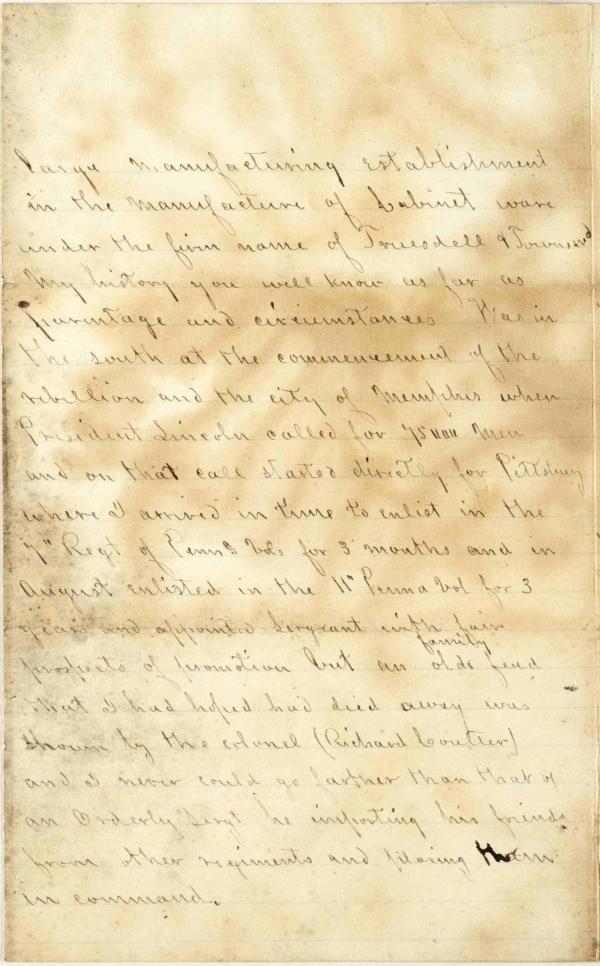 large manufacturing establishment
in the manufacture of Cabinet ware
under the firm name of Truesdell & Townsend
My history you well know as far as
parentage and circumstances Was in
the south at the commencement of the
rebellion and the city of Memphis when
President Lincoln called for 75000 Men
and on that call started directly for Pittsburg
where I arrived in time to enlist in the
7" Regt of Penna Vols for 3 months and in
August enlisted in the 11" Penna Vol for 3
years and appointed Sergeant with fair
prospects of promotion but an old family feud
that I had hoped had died away was
shown by the colonel (Richard Coulter)
and I never could go farther than that of
an Orderly Sergt he importing his friends
from other regiments and placing them
in command.